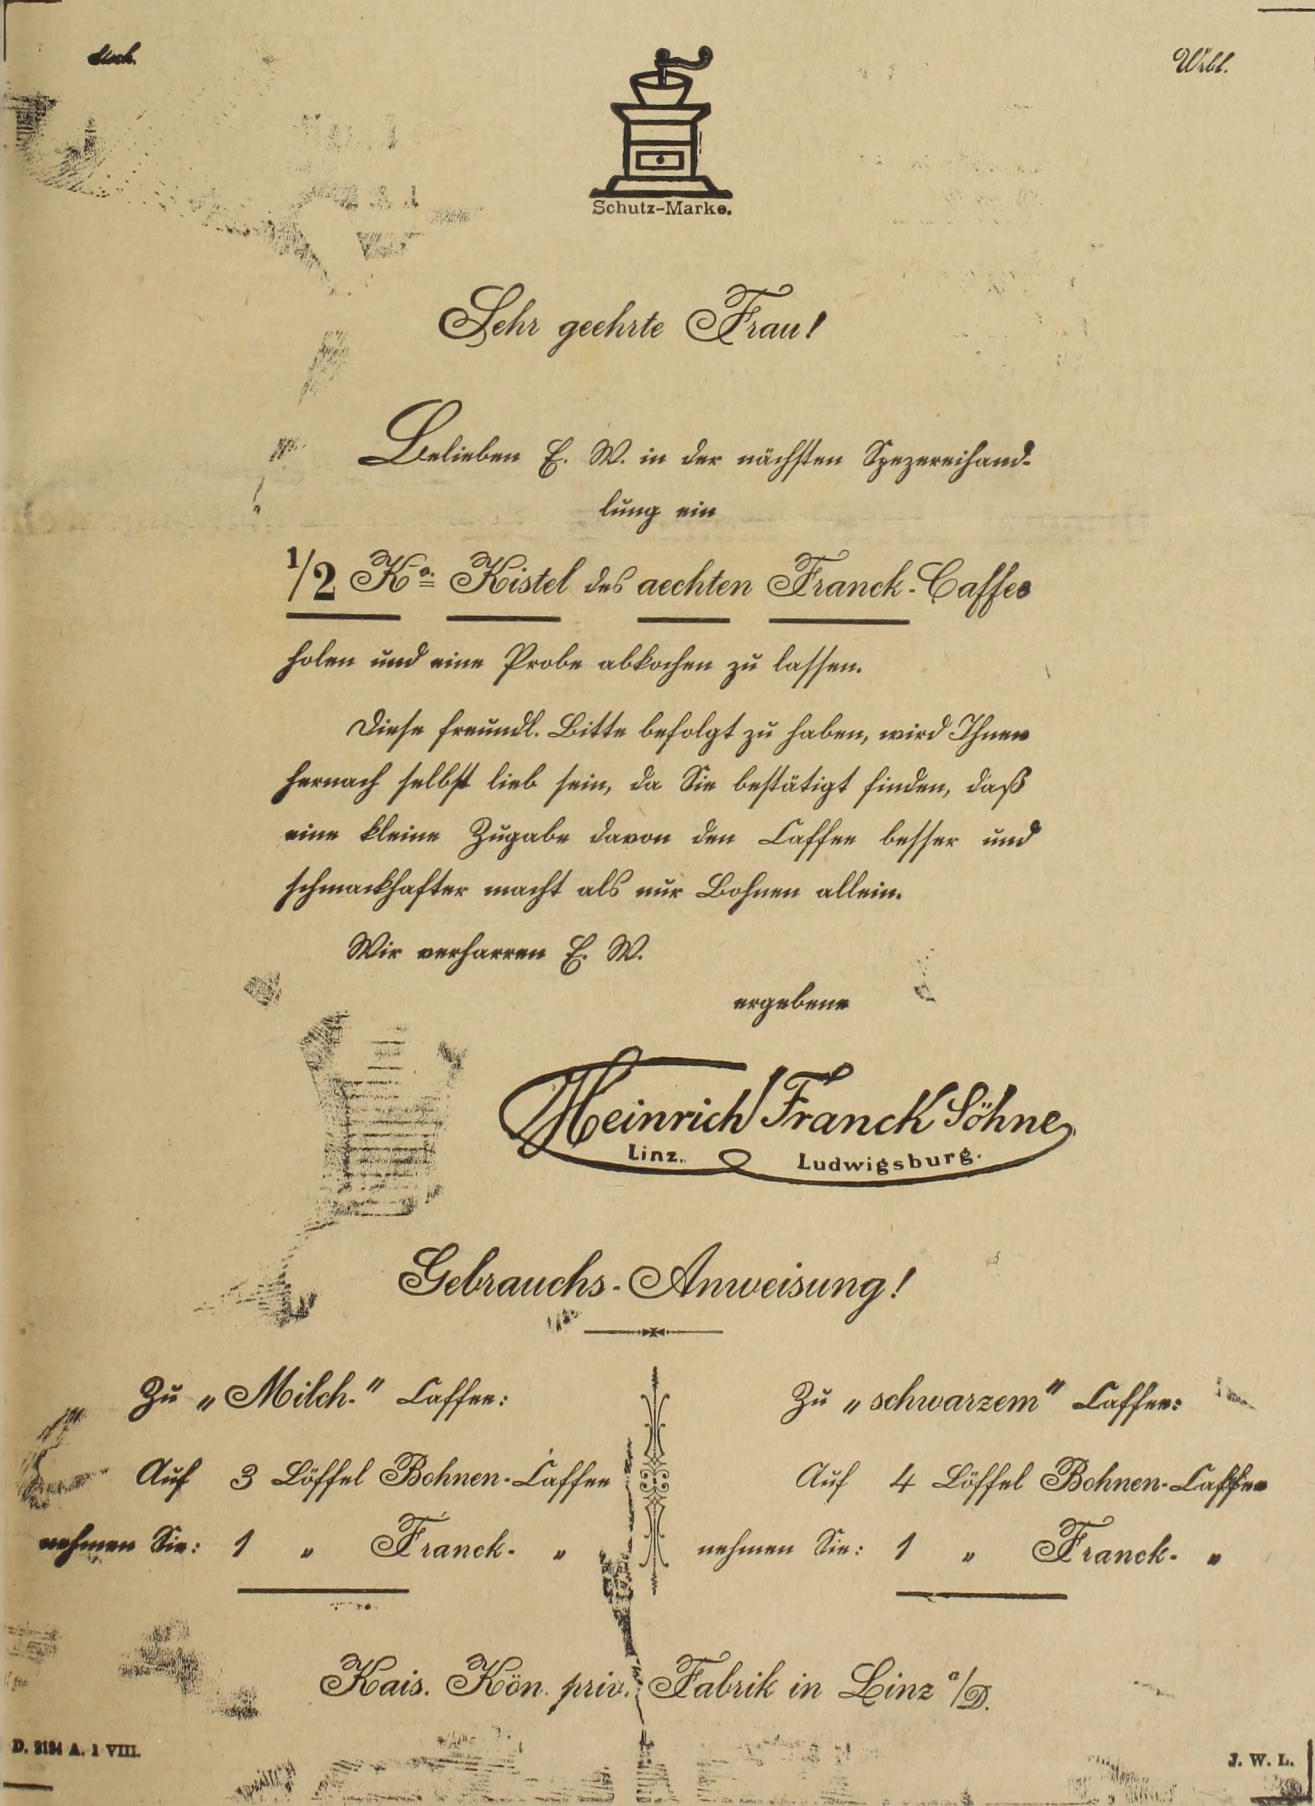 Wrbl.
Schutz-Marke.
Sehr geehrte Frau!
Belieben E. W. in der nächsten Spezereihand-
lung ein
1/2 Ko. Kistel des aechten Franck-Caffee
holen und eine Probe abkochen zu lassen.
Diese freundl. Bitte befolgt zu haben, wird Ihnen
hernach selbst lieb sein, da Sie bestätigt finden, daß
eine kleine Zugabe davon den Caffee besser und
schmackhafter macht als nur Bohnen allein.
Wir verharren E. W.
ergebene
Heinrich Franck Söhne
Linz. Ludwigsburg.
Gebrauchs-Anweisung!
Zu „Milch-" Caffee:
Auf 3 Löffel Bohnen-Caffee
nehmen Sie: 1 „ Franck- „
Zu „schwarzem" Caffee:
Auf 4 Löffel Bohnen-Caffee
nehmen Sie: 1 „ Franck- „
Kais. Kön. priv. Fabrik in Linz a/D.
D. 2134 A. 1 VIII.
J. W. L.